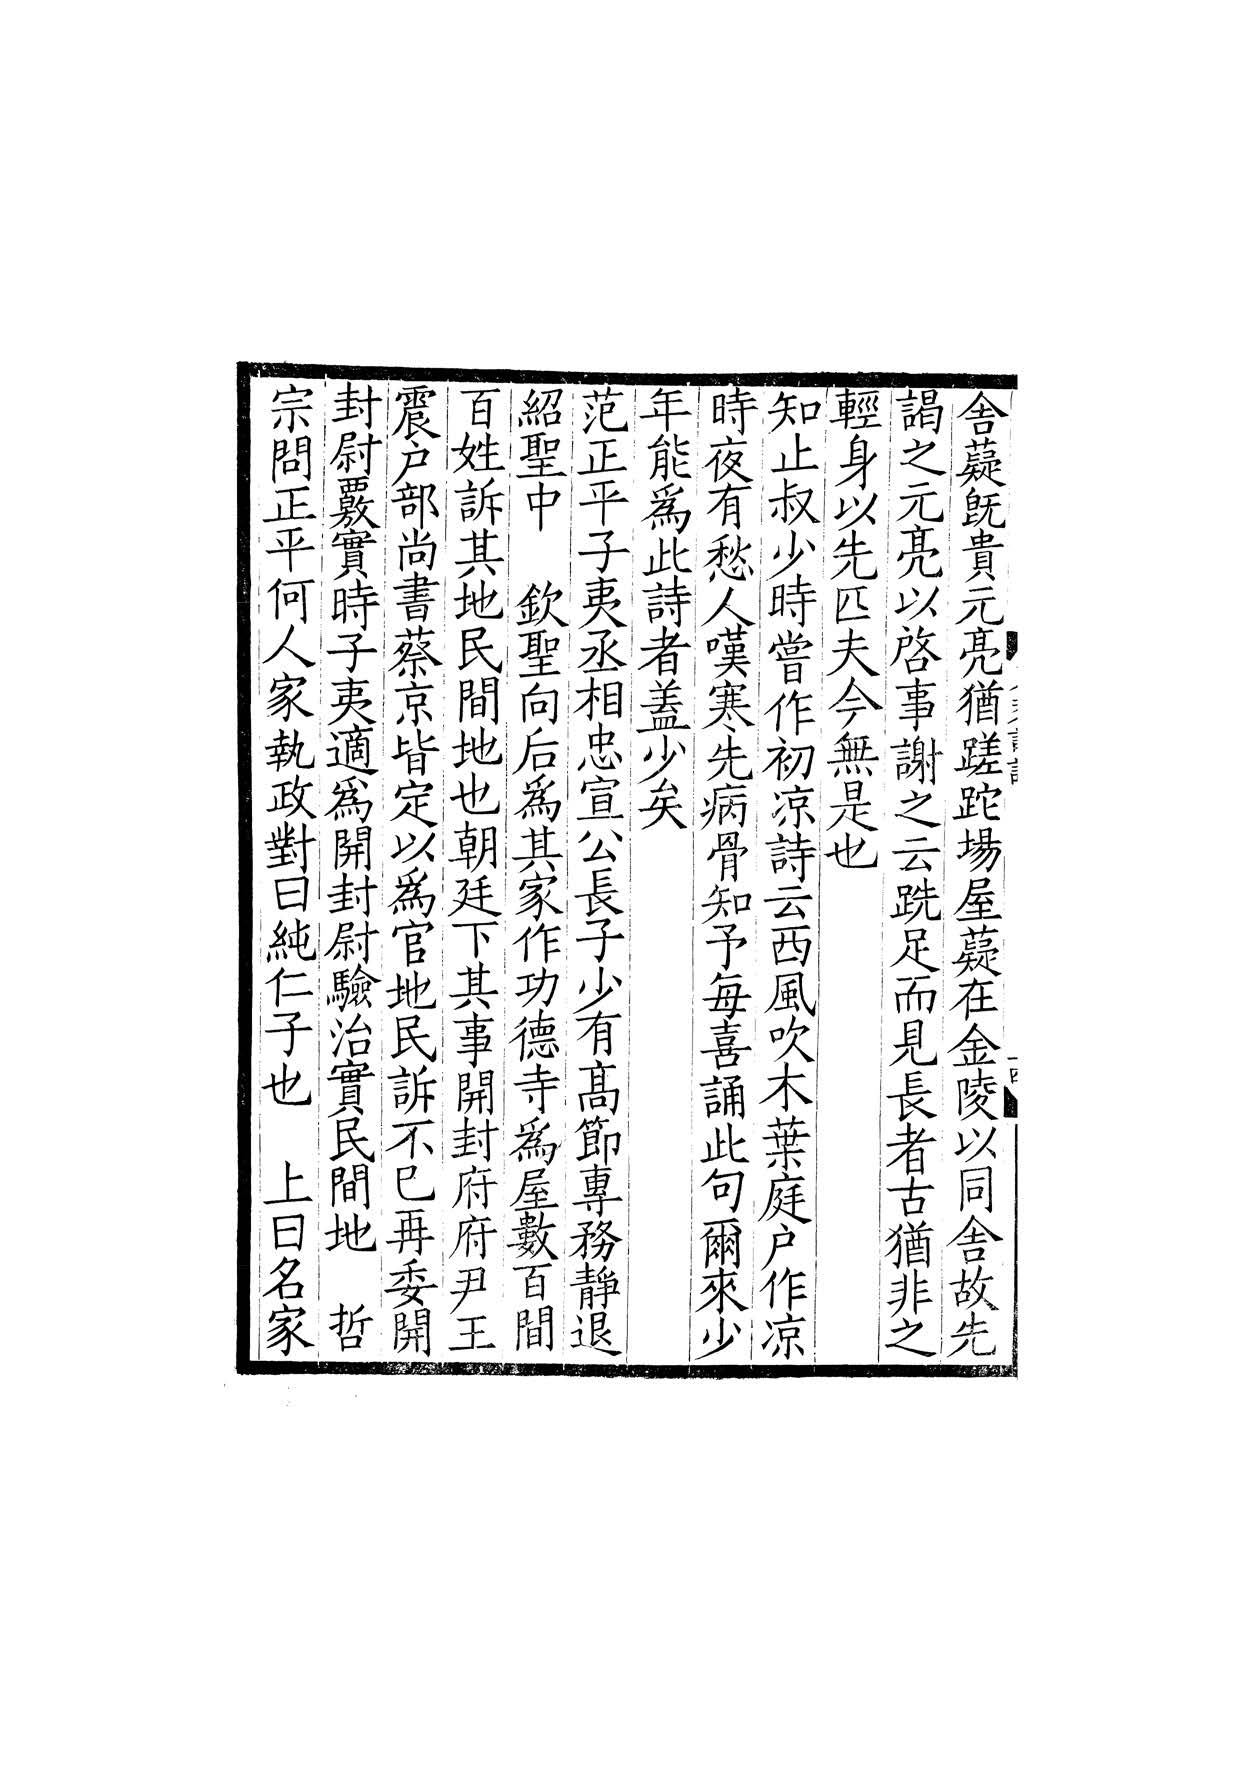 舎薿旣貴元亮猶蹉跎場屋薿在金陵以同舎故先
謁之元亮以啓事謝之云跣足而見長者古猶非之
輕身以先匹夫今無是也
知止叔少時嘗作初凉詩云西風吹木葉庭户作凉
時夜有愁人嘆寒先病骨知予每喜誦此句爾來少
年能爲此詩者盖少矣
范正平子夷丞相忠宣公長子少有髙節專務靜退
紹聖中 欽聖向后爲其家作功德寺爲屋數百間
百姓訴其地民間地也朝廷下其事開封府府尹王
震户部尚書蔡京皆定以爲官地民訴不已再委開
封尉覈實時子夷適爲開封尉驗治實民間地 哲
宗問正平何人家執政對曰純仁子也 上曰名家